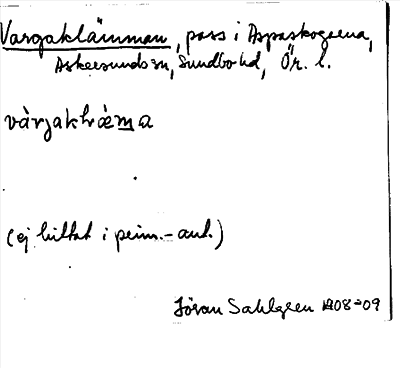 Vargaklämman, pass i Aspaskogarna,
Askersunds sn, Sundbo hd, Ör. l.
vàrjaklæ̀ma
(ej hittat i prim.-ant.)
Jöran Sahlgren 1908-09